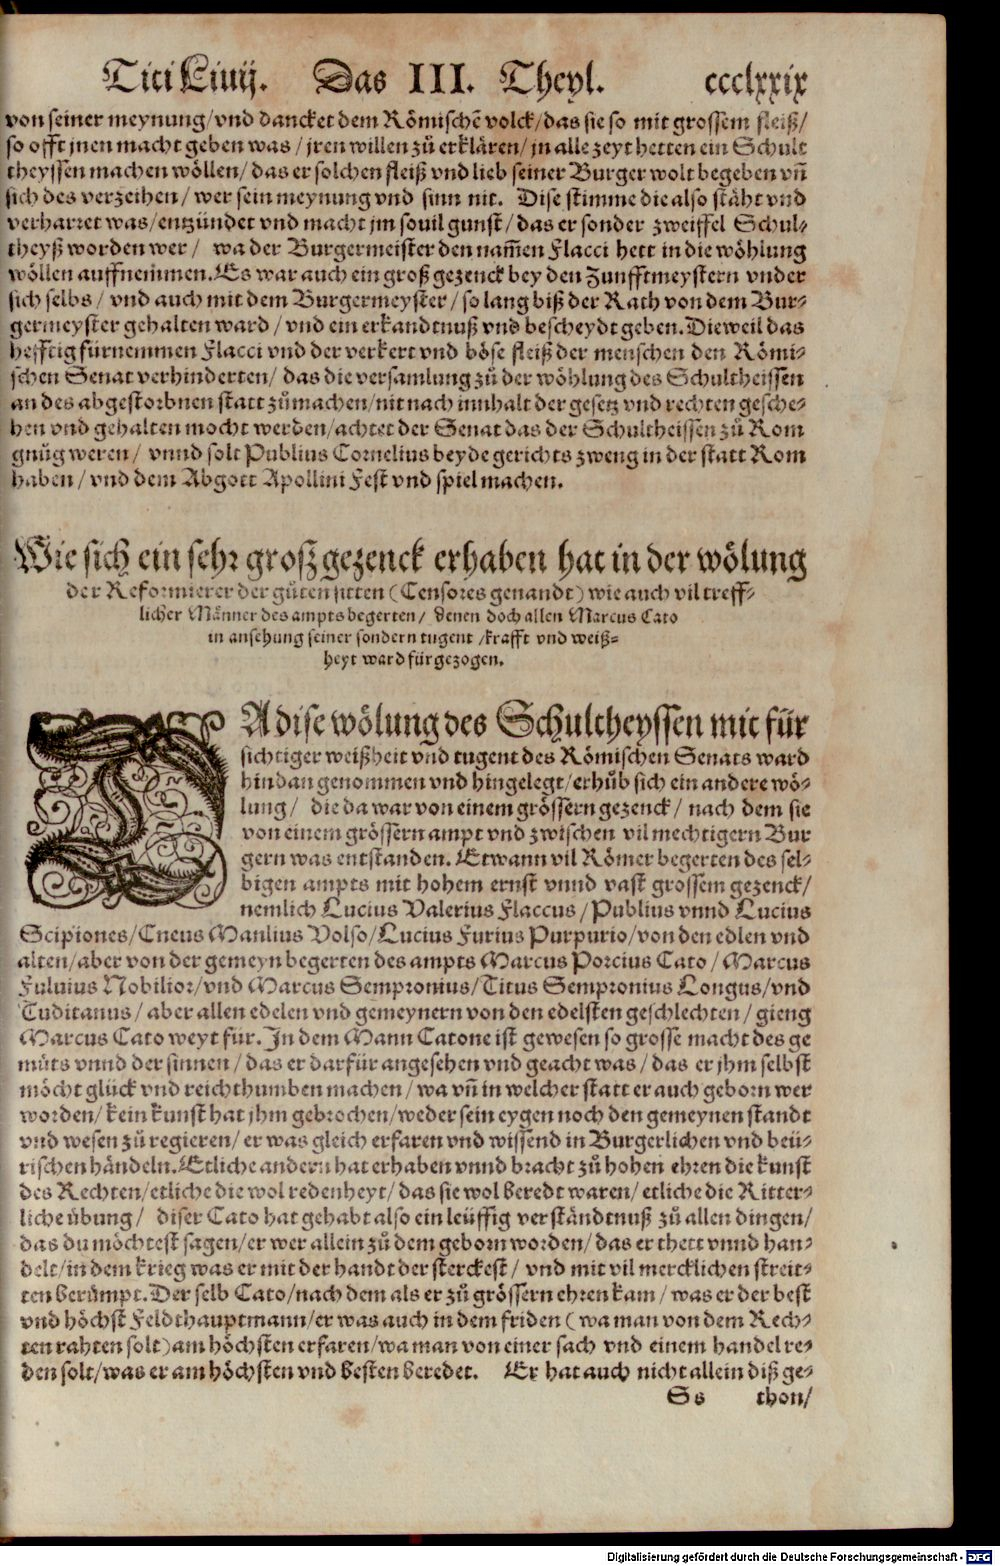 Titi Liuij. Das III. Theyl. ccclxxix
von seiner meynung/vnd dancket dem Römischē volck/das sie so mit grossem fleiß/
so offt jnen macht geben was / jren willen zů erklären/jn alle zeyt hetten ein Schult
theyssen machen wöllen/das er solchen fleiß vnd lieb seiner Burger wolt begeben vn̄
sich des verzeihen/wer sein meynung vnd sinn nit. Dise stimme die also stäht vnd
verharret was/entzündet vnd macht jm souil gunst/das er sonder zweiffel Schul-
theyß worden wer/ wa der Burgermeister den nam̄en Flacci hett in die wöhlung
wöllen auffnemmen. Es war auch ein groß gezenck bey den Zunfftmeystern vnder
sich selbs / vnd auch mit dem Burgermeyster/so lang biß der Rath von dem Bur-
germeyster gehalten ward / vnd ein erkandtnuß vnd bescheydt geben. Dieweil das
hefftig fürnemmen Flacci vnd der verkert vnd böse fleiß der menschen den Römi-
schen Senat verhinderten/ das die versamlung zů der wöhlung des Schultheissen
an des abgestorbnen statt zůmachen/nit nach innhalt der gesetz vnd rechten gesche-
hen vnd gehalten mocht werden/achtet der Senat das der Schultheissen zů Rom
gnůg weren/ vnnd solt Publius Cornelius beyde gerichts zweng in der statt Rom
haben/vnd dem Abgott Apollini Fest vnd spiel machen.
Wie sich ein sehr grosz gezenck erhaben hat in der wölung
der Reformierer der gůten sitten (Censores genandt) wie auch vil treff-
licher Männer des ampts begerten/ denen doch allen Marcus Cato
in ansehung seiner sondern tugent /krafft vnd weiß-
heyt ward fürgezogen.
DA dise wölung des Schultheyssen mit für
sichtiger weißheit vnd tugent des Römischen Senats ward
hindan genommen vnd hingelegt/erhůb sich ein andere wö-
lung/ die da war von einem grössern gezenck/ nach dem sie
von einem grössern ampt vnd zwischen vil mechtigern Bur
gern was entstanden. Etwann vil Römer begerten des sel-
bigen ampts mit hohem ernst vnnd vast grossem gezenck/
nemlich Lucius Valerius Flaccus / Publius vnnd Lucius
Scipiones/Cneus Manlius Volso/Lucius Furius Purpurio/von den edlen vnd
alten/aber von der gemeyn begerten des ampts Marcus Porcius Cato / Marcus
Fuluius Nobilior/vnd Marcus Sempronius/Titus Sempronius Longus/vnd
Tuditanus/ aber allen edelen vnd gemeynern von den edelsten geschlechten / gieng
Marcus Cato weyt für. In dem Mann Catone ist gewesen so grosse macht des ge
můts vnnd der sinnen / das er darfür angesehen vnd geacht was / das er jhm selbst
möcht glück vnd reichthumben machen / wa vn̄ in welcher statt er auch geborn wer
worden/kein kunst hat jhm gebrochen/weder sein eygen noch den gemeynen standt
vnd wesen zů regieren/ er was gleich erfaren vnd wissend in Burgerlichen vnd beü-
rischen händeln. Etliche andern hat erhaben vnnd bracht zů hohen ehren die kunst
des Rechten/etliche die wol redenheyt/das sie wol beredt waren/ etliche die Ritter-
liche übung/ diser Cato hat gehabt also ein leüffig verständtnuß zů allen dingen/
das du möchtest sagen/er wer allein zů dem geborn worden/das er thett vnnd han-
delt/in dem krieg was er mit der handt der sterckest / vnd mit vil mercklichen streit-
ten berümpt. Der selb Cato/nach dem als er zů grössern ehren kam / was er der best
vnd höchst Feldthauptmann/er was auch in dem friden (wa man von dem Rech-
ten rahten solt) am höchsten erfaren/wa man von einer sach vnd einem handel re-
den solt/was er am höchsten vnd besten beredet. Er hat auch nicht allein diß ge-
Ss thon/
Digitalisierung gefördert durch die Deutsche Forschungsgemeinschaft - DFG